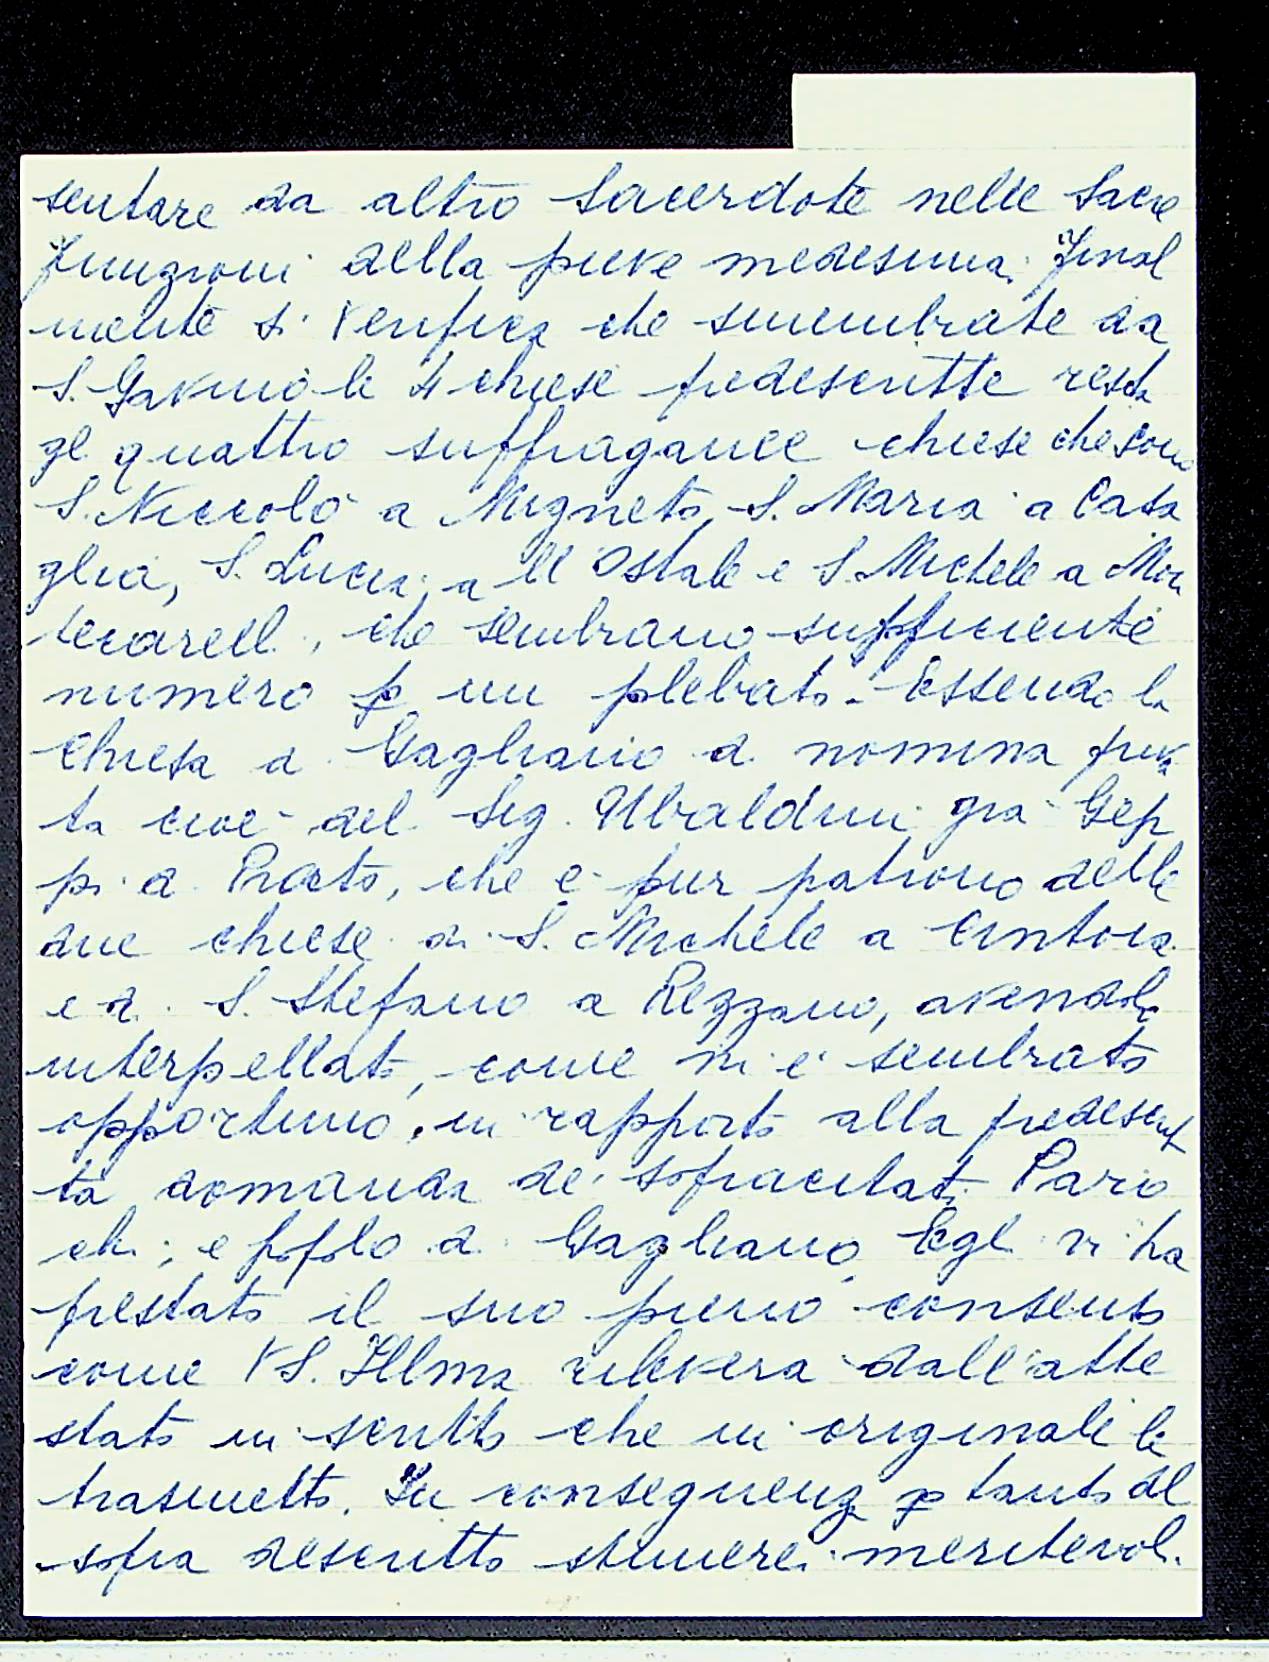 sentare da altro Sacerdote nelle Sacre
funzioni della pieve medesima. Final
mente si verifica che smembrate da
S. Gavino le 4 chiese predescritte resta
gl quattro suffraganee chiese che sono
S. Niccolò a Migneto, S. Maria a Casa
glia, S. Lucia all'Ostale e S. Michele a Mon
tecarell., che sembrano sufficiente
numero p un plebato. Essendo la
Chiesa di Gagliano di nomina priva
ta cioè del Sig. Ubaldini già Gep
pi di Prato, che è pur patrono delle
due chiese di S. Michele a Cintoia
e di S. Stefano a Rezzano, avendolo
interpellato, come mi è sembrato
opportuno, in rapporto alla predescrit
ta domanda de' sopracitati Parro
chi; e popolo di Gagliano, Egli vi ha
prestato il suo pieno consenso
come VS. Illma rileverà dall'atte
stato in scritto che in originale le
trasmetto. In conseguenza p tanto del
sopra descritto stimerei meritevol.